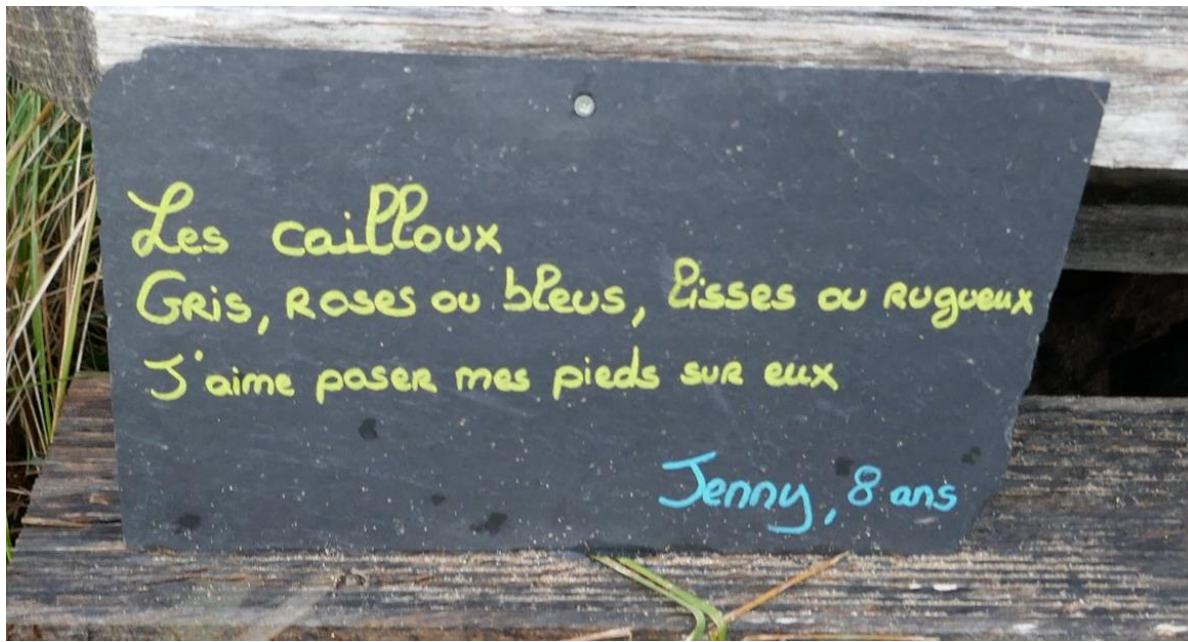 Les cailloux
Gris, roses ou bleus, lisses ou rugueux
J'aime poser mes pieds sur eux
Jenny, 8 ans